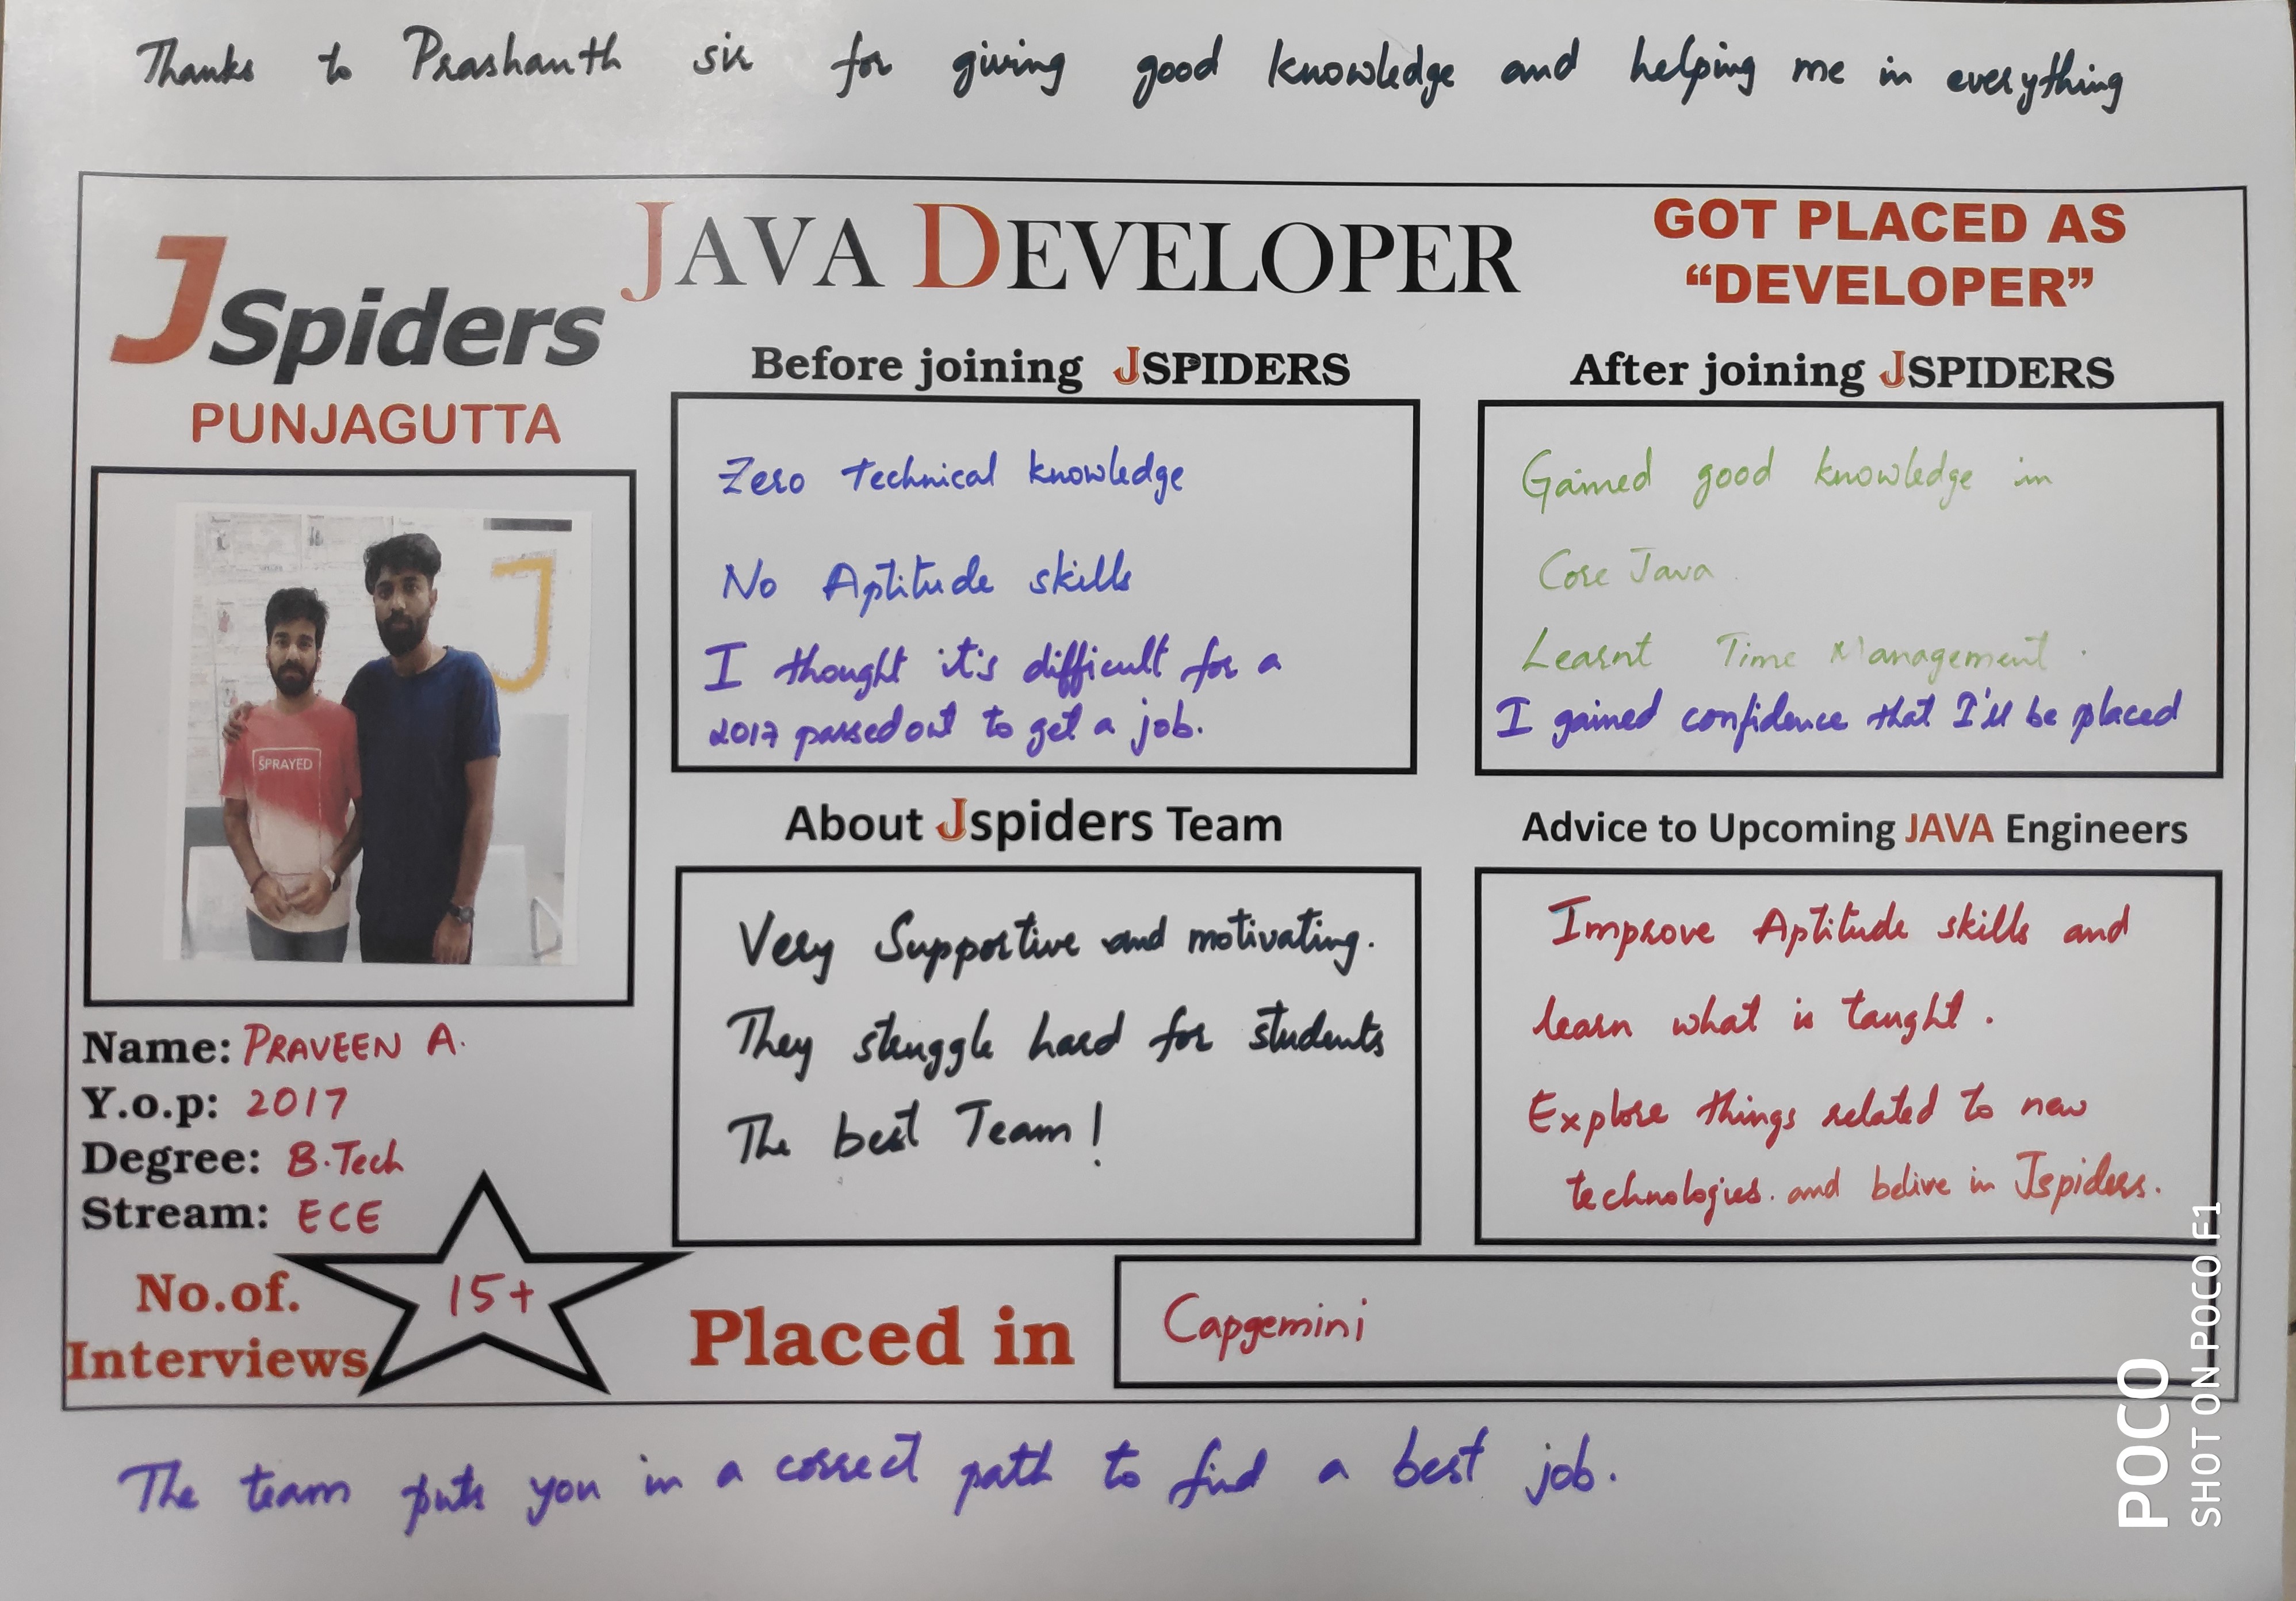 Thanks to Prashanth sir for giving good knowledge and helping me in everything
JAVA DEVELOPER
GOT PLACED AS
“DEVELOPER”
JSpiders
PUNJAGUTTA
Before joining JSPIDERS
Zero Technical knowledge
No Aptitude skills
I thought it's difficult for a
2017 passed out to get a job.
After joining JSPIDERS
Gained good knowledge in
Core Java
Learnt Time Management.
I gained confidence that I'll be placed
J
SPRAYED
Name: PRAVEEN A.
Y.o.p: 2017
Degree: B.Tech
Stream: ECE
No.of.
Interviews
15+
About Jspiders Team
Very Supportive and motivating.
They struggle hard for students
The best Team!
Advice to Upcoming JAVA Engineers
Improve Aptitude skills and
learn what is taught.
Explore things related to new
technologies. and belive in Jspiders.
Placed in
Capgemini
The team puts you in a correct path to find a best job.
POCO
SHOT ON POCO F1